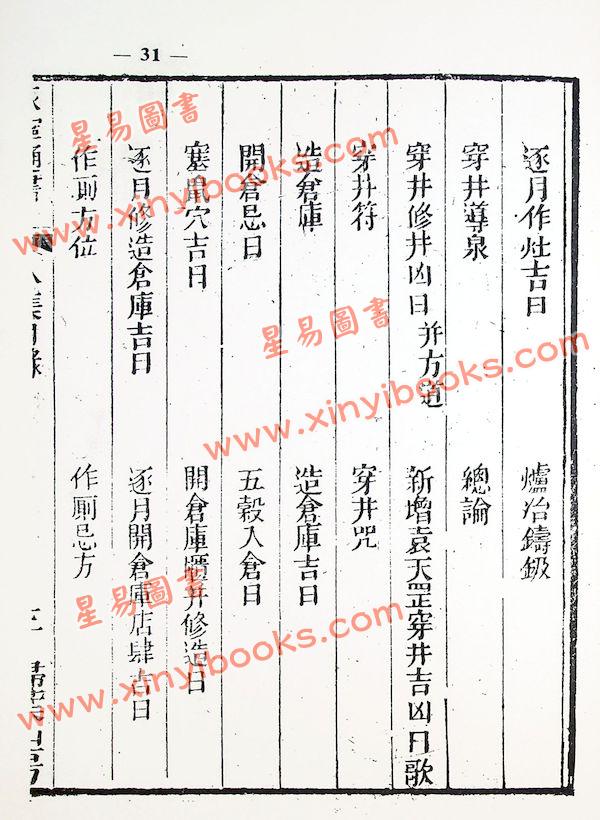 — 31 —
逐月作灶吉日 爐冶鑄鈒
穿井導泉 總論
穿井修井凶日 并方道 新增袁天罡穿井吉凶日歌
穿井符 穿井咒
造倉庫 造倉庫吉日
開倉忌日 五穀入倉日
塞鼠穴吉日 開倉庫 井修造日
逐月修造倉庫吉日 逐月開倉庫店肆吉日
作厠方位 作厠忌方
八集目錄 三
星易圖書
www.xinyibooks.com
星易圖書
www.xinyibooks.com
星易圖書
www.xinyibooks.com